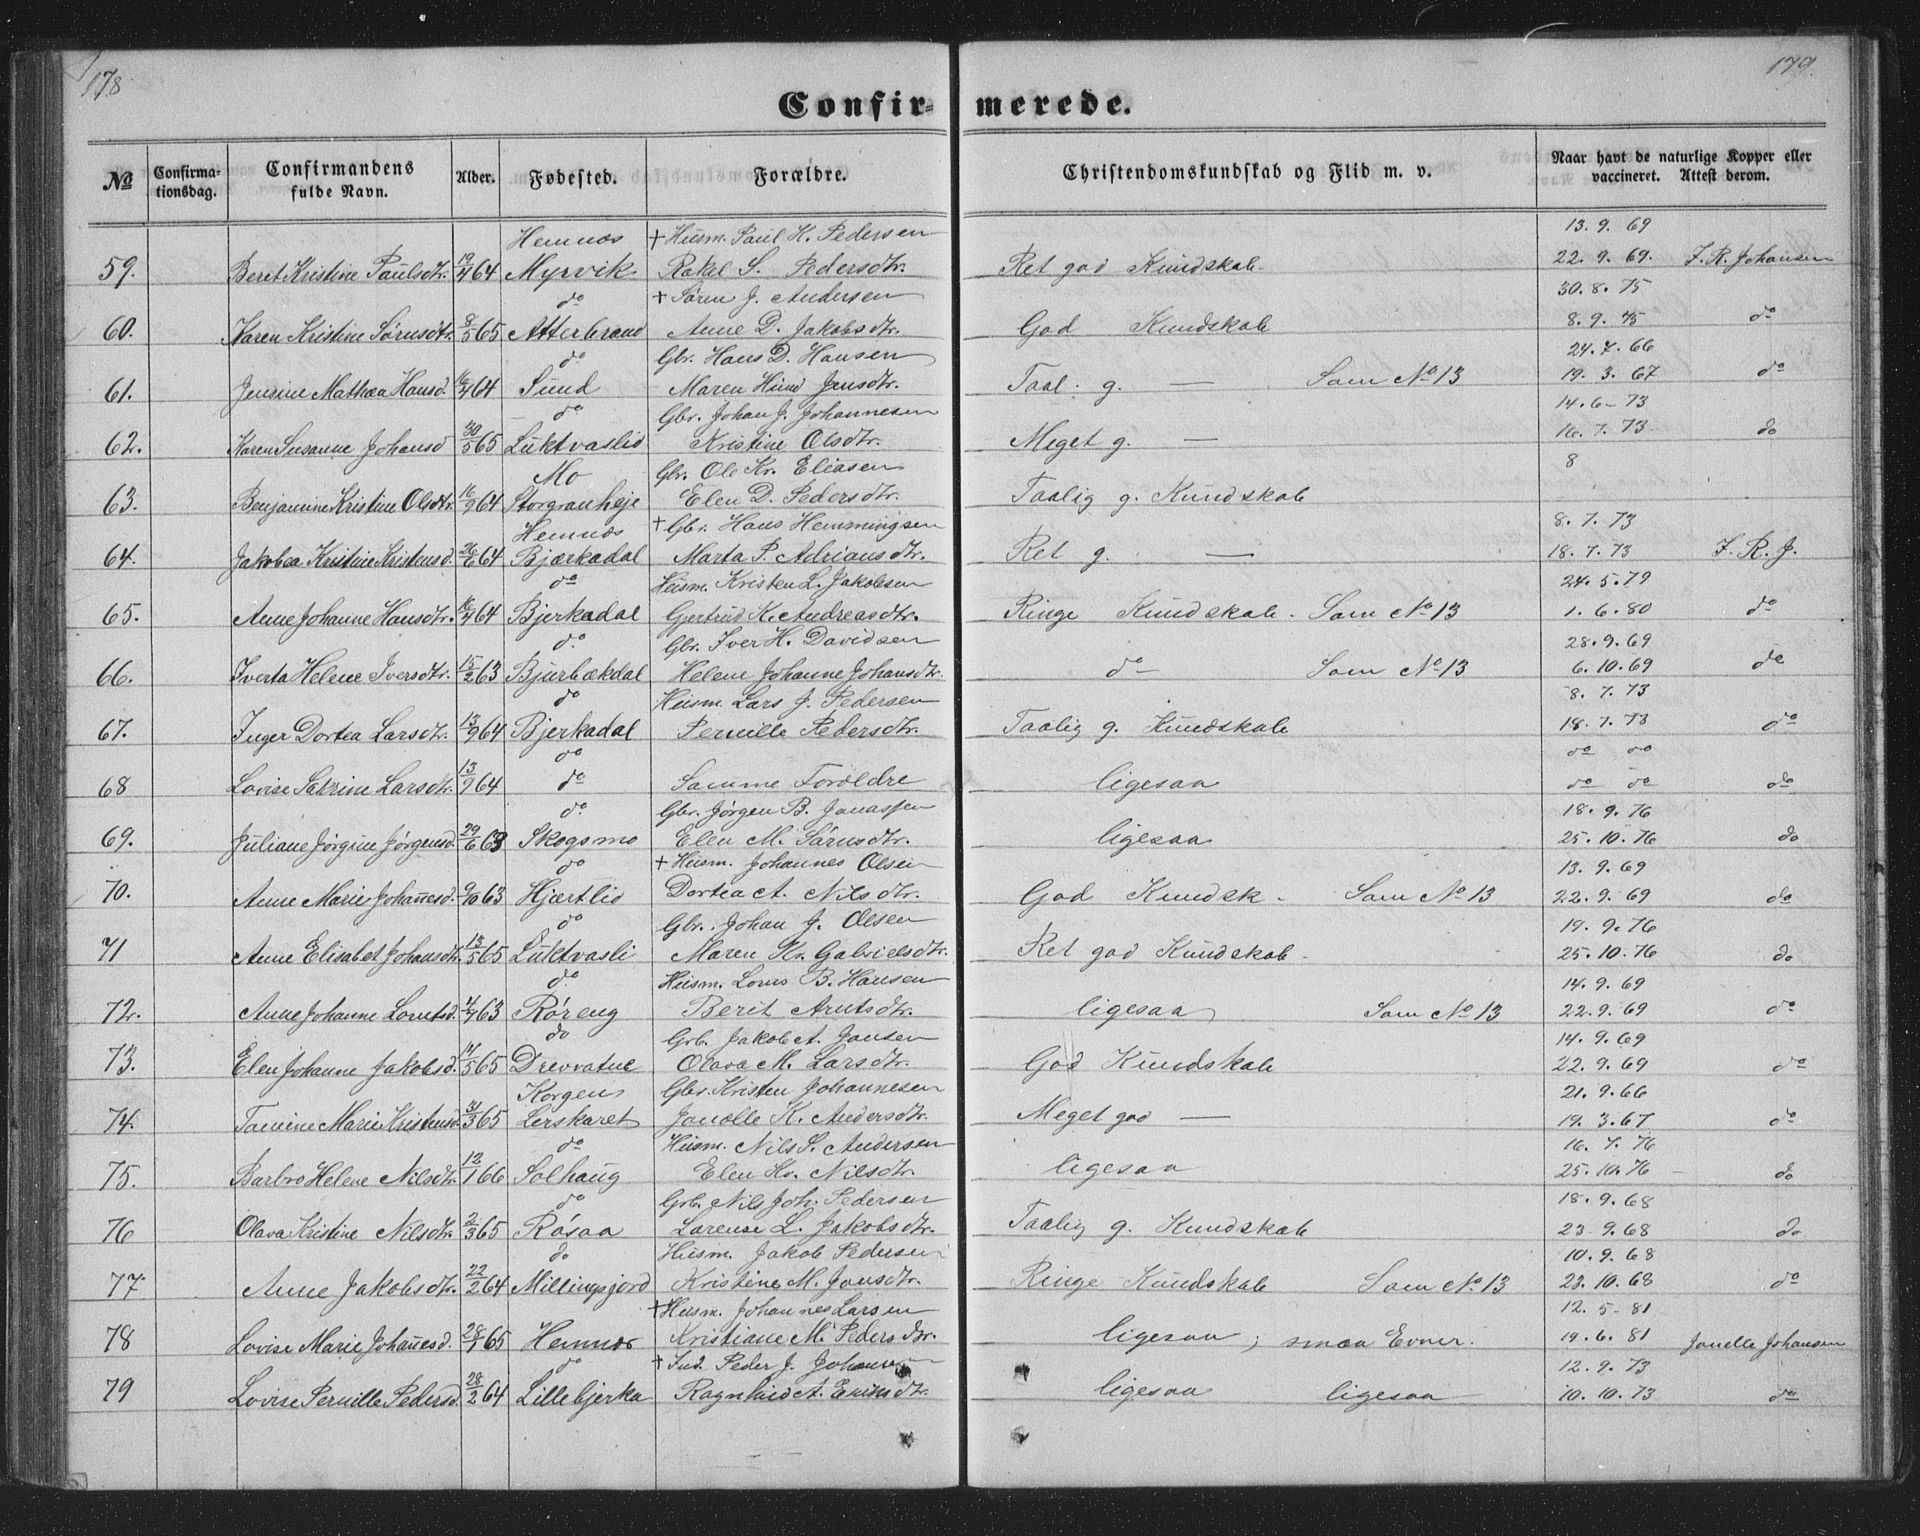 178
179.
Confir- merede.
№ Confirma-tionsdag. Confirmandens fulde Navn. Alder. Fødested. Forældre. Christendomskundskab og Flid m. v. Naar havt de naturlige Kopper eller vaccineret. Attest derom.
Hemnæs + Husm. Paul K. Pedersen 13. 9. 69
59. Beret Kristine Paulsdtr. 19/4 64 Myrvik Rakel S. Pedersdtr. Ret god Kundskab. 22. 9. 69. F. R. Johansen
do + Søren J. Andersen 30. 8. 75
60. Karen Kristine Sørnsdtr. 8/5 65 Atterbrand Anne D. Jakobsdtr. God Kundskab 8. 9. 75 do
do Gbr. Hans D. Hansen 24. 7. 66
61. Jensine Mathea Hansd. 64 Sund Maren Hind Jensdtr. Taal. g. — Som No 13 19. 3. 67 do
do Gbr. Johan J. Johannesen 14. 6 - 73
62. Karen Susanne Johansd 30/5 65 Luktvaslid Kristine Olsdtr. Meget g. — 16. 7. 73 do
Mo Gbr. Ole Kr. Eliasen 8
63. Benjamine Kristine Olsdtr. 16/9 64 Storgranheje Elen D. Pedersdtr. Taalig g. Kundskab
Hemnæs + Gbr. Hans Hemmingsen 8. 7. 73
64. Jakobea Kristine Kristensd. 26/6 64 Bjærkadal Marta P. Adriansdtr. Ret g. — 18. 7. 73 F. R. J.
do Husm. Kristen L. Jakobsen 24. 5. 79
65. Anne Johanne Hansdtr. 64 Bjerkadal Gjertrud K. Andreasdtr. Ringe Kundskab. Som No 13 1. 6. 80 do
do. Gbr. Iver H. Davidsen 28. 9. 69
66. Iverta Helene Iversdtr. 15/2 63 Bjurbækdal Helene Johanne Johansdtr. do Som No 13 6. 10. 69 do
do Husm. Lars J. Pedersen 8. 7. 73
67. Inger Dortea Larsdtr. 13/9 64 Bjerkadal Pernille Pedersdtr. Taalig g. Kundskab 18. 7. 73 do
do do do
68 Lovise Katrine Larsdtr. 13/9 64 do Samme Foroldre ligesaa do do do
do. Gbr. Jørgen B. Jonassen 18. 9. 76
69. Juliane Jørgine Jørgensd. 29/6 63 Skogsmo Elen M. Sørnsdtr. ligesaa 25. 10. 76 do
do + Husm. Johannes Olsen 13. 9. 69
70. Anne Marie Johannesd. 9/10 63 Hjærtlid Dortea A. Nilsdtr. God Kundsk. Som No 13 22. 9. 69 do
do Gbr. Johan J. Olsen 19. 9. 76
71 Anne Elisabet Johansdtr. 13/5 65 Luktvasli Maren Kr. Gabrielsdtr. Ret god Kundskab. 25. 10. 76 do
do. Husm. Lorns B. Hansen 14. 9. 69
72. Anne Johanne Lorntsd. 63 Røreng Berit Arntsdtr. ligesaa Som No 13 22. 9. 69 do
do Grb. Jakob A. Jonsen 14. 9. 69
73. Elen Johanne Jakobsd. 65 Drevvatne Olava M. Larsdtr. God Kundskab 22. 9. 69 do
Korgen Gbr. Kristen Johannesen 21. 9. 66
74. Tomine Marie Kristensd. 31/3 65 Lerskaret Jonelle K. Andersdtr. Meget god — 19. 3. 67 do
do Husm. Nils S. Andersen 16. 7. 76
75. Barbro Helene Nilsdtr. 12/1 66 Solhaug Elen Kr. Nilsdtr. ligesaa 25. 10. 76 do
do Grb. Nils Joh. Pedersen 18. 9. 68
76 Olava Kristine Nilsdtr. 2/3 65 Røsaa Lorense L. Jakobsdtr. Taalig g. Kundskab 23. 9. 68 do
do Husm. Jakob Pedersen 10. 9. 68
77 Anne Jakobsdtr. 22/2 64 Millingsjord Kristine M. Jonsdtr. Ringe Kundskab Som No 13 23. 10. 68 do
+ Husm. Johannes Larsen 12. 5 - 81
78 Lovise Marie Johannesd. 65 Hemnæs Kristiane M. Pedersdtr. ligesaa ; smaa Evner. 19. 6. 81 Jonelle Johansen
do + Ind. Peder J. Johansen 12. 9. 73
79 Lovise Pernille Pedersd. 28/2 64 Lillebjerka Ragnhild A. ligesaa ligesaa 10. 10. 73 do